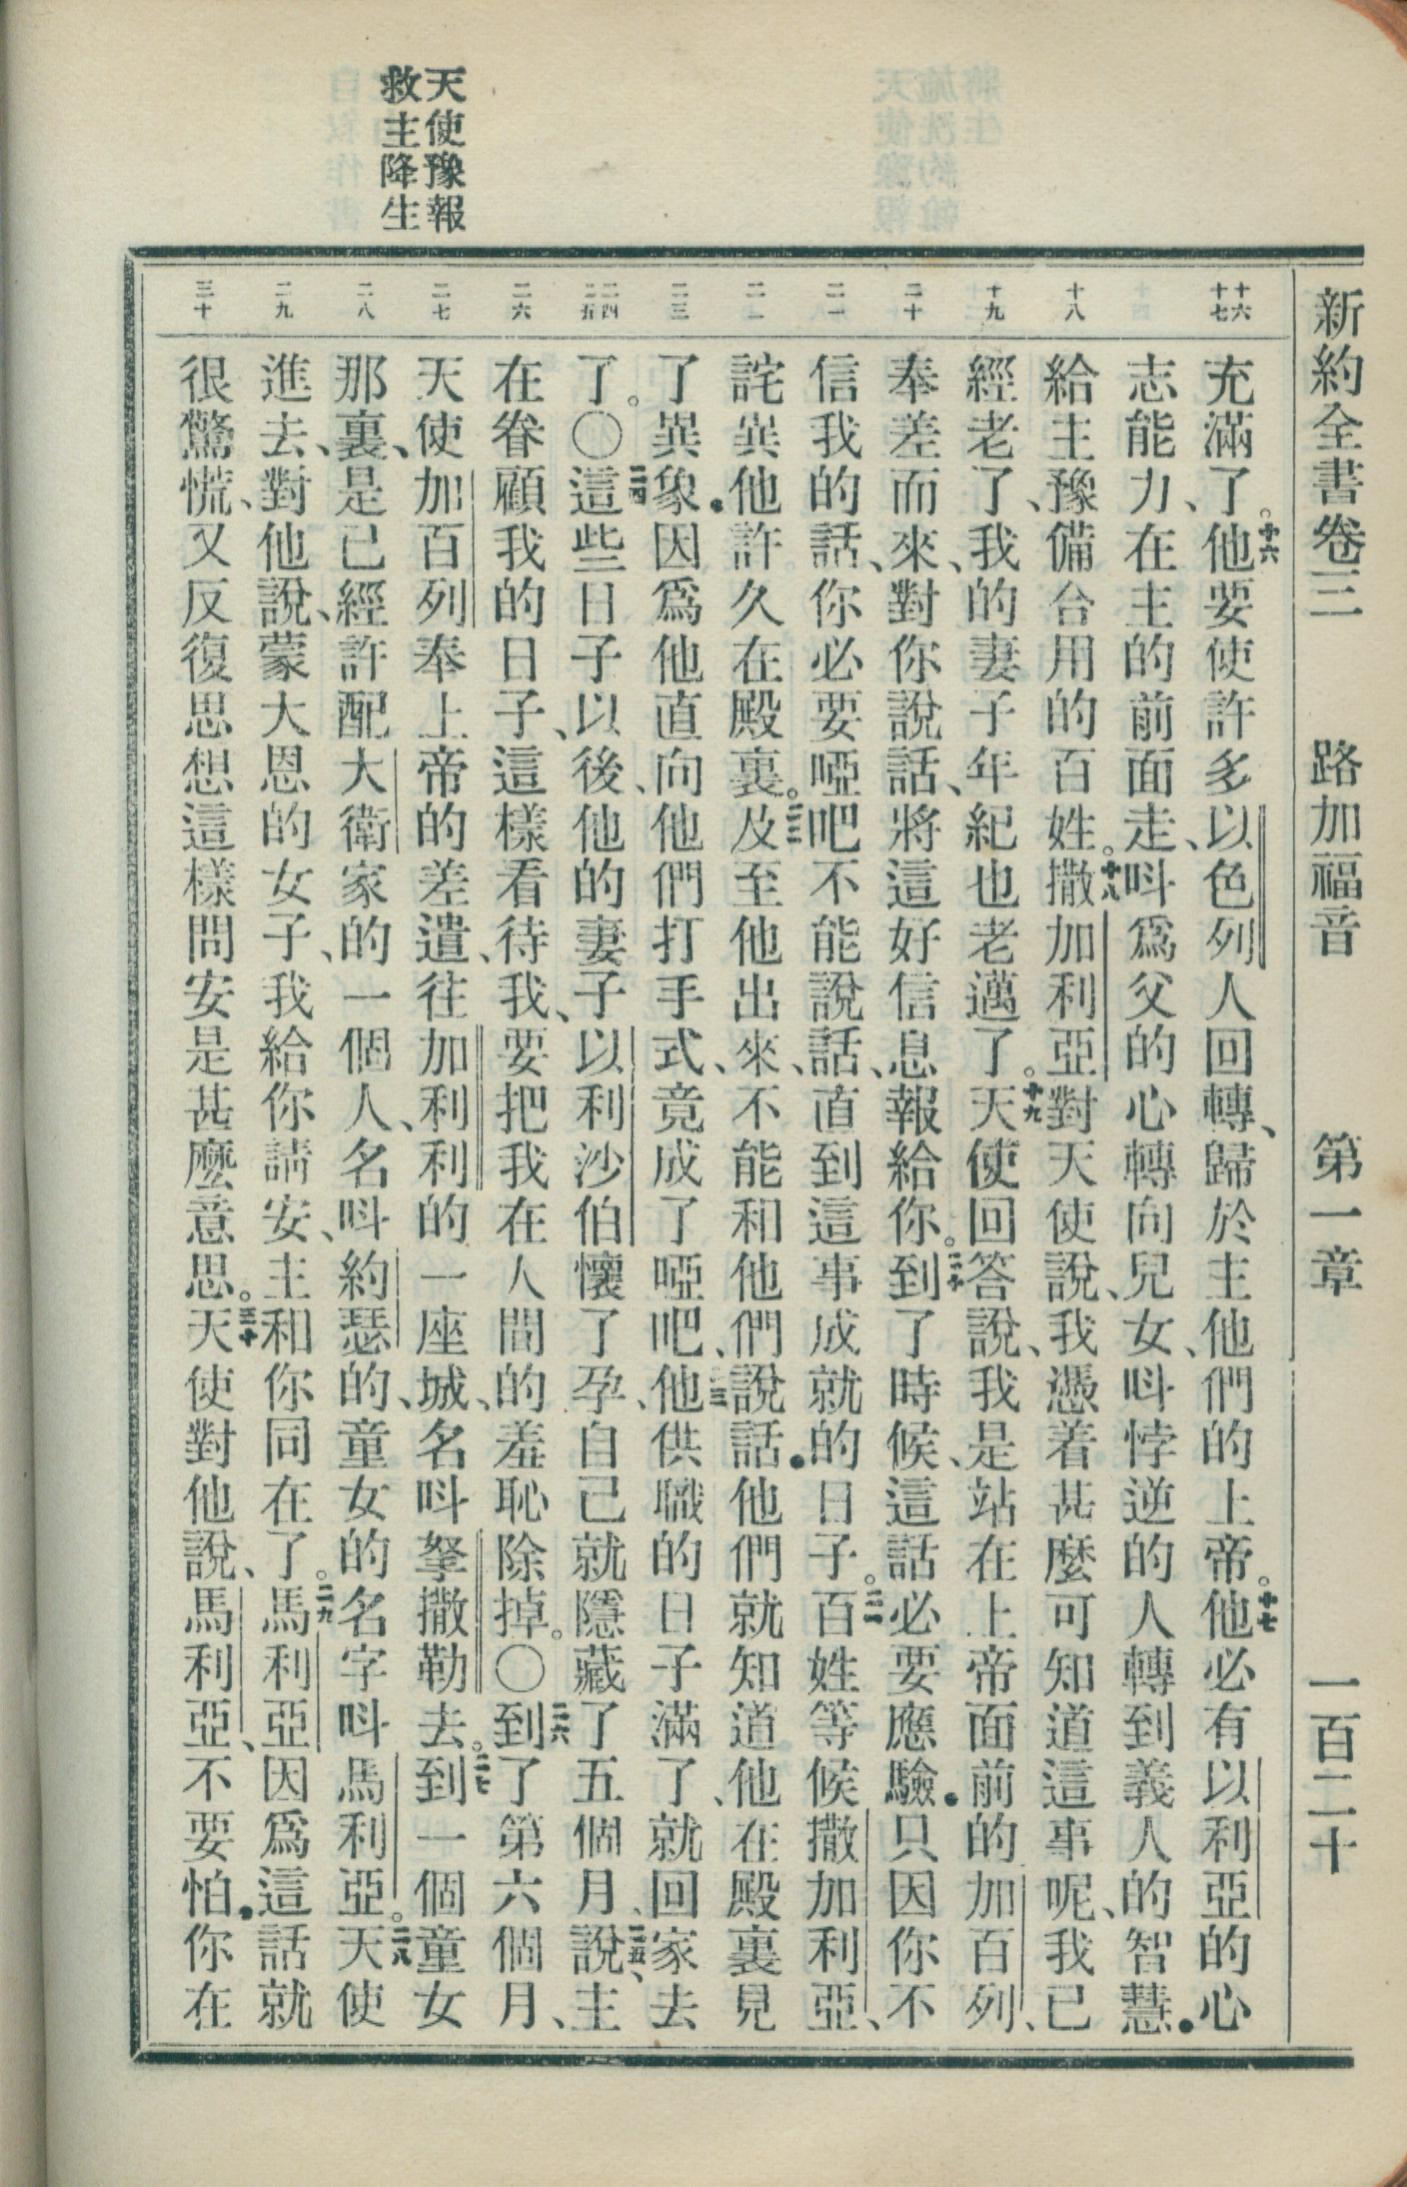 新約全書卷三 路加福音 第一章 一百二十
天使豫報
救主降生
十六 十七 十八 十九 二十 二一 二二 二三 二四 二五 二六 二七 二八 二九 三十
充滿了。十六他要使許多以色列人回轉、歸於主他們的上帝。十七他必有以利亞的心
志能力、在主的前面走、呌爲父的心轉向兒女、呌悖逆的人轉到義人的智慧．
給主豫備合用的百姓。十八撒加利亞對天使說、我憑着甚麽可知道這事呢、我已
經老了、我的妻子年紀也老邁了。十九天使回答說、我是站在上帝面前的加百列、
奉差而來、對你說話、將這好信息報給你。二十到了時候、這話必要應驗．只因你不
信我的話、你必要啞吧不能說話、直到這事成就的日子。二一百姓等候撒加利亞、
詫異他許久在殿裏。二二及至他出來、不能和他們說話．他們就知道他在殿裏見
了異象．因爲他直向他們打手式、竟成了啞吧、二三他供職的日子滿了、就回家去
了。〇二四這些日子以後、他的妻子、以利沙伯懷了孕、自己就隱藏了五個月、二五說、主
在眷顧我的日子、這樣看待我、要把我在人間的羞恥除掉。〇二六到了第六個月、
天使加百列奉上帝的差遣、往加利利的一座城、名呌拏撒勒去。二七到一個童女
那裏、是已經許配大衛家的一個人、名呌約瑟的、童女的名字呌馬利亞。二八天使
進去、對他說、蒙大恩的女子、我給你請安、主和你同在了。二九馬利亞因爲這話就
很驚慌、又反復思想這樣問安是甚麽意思。三十天使對他說、馬利亞、不要怕．你在